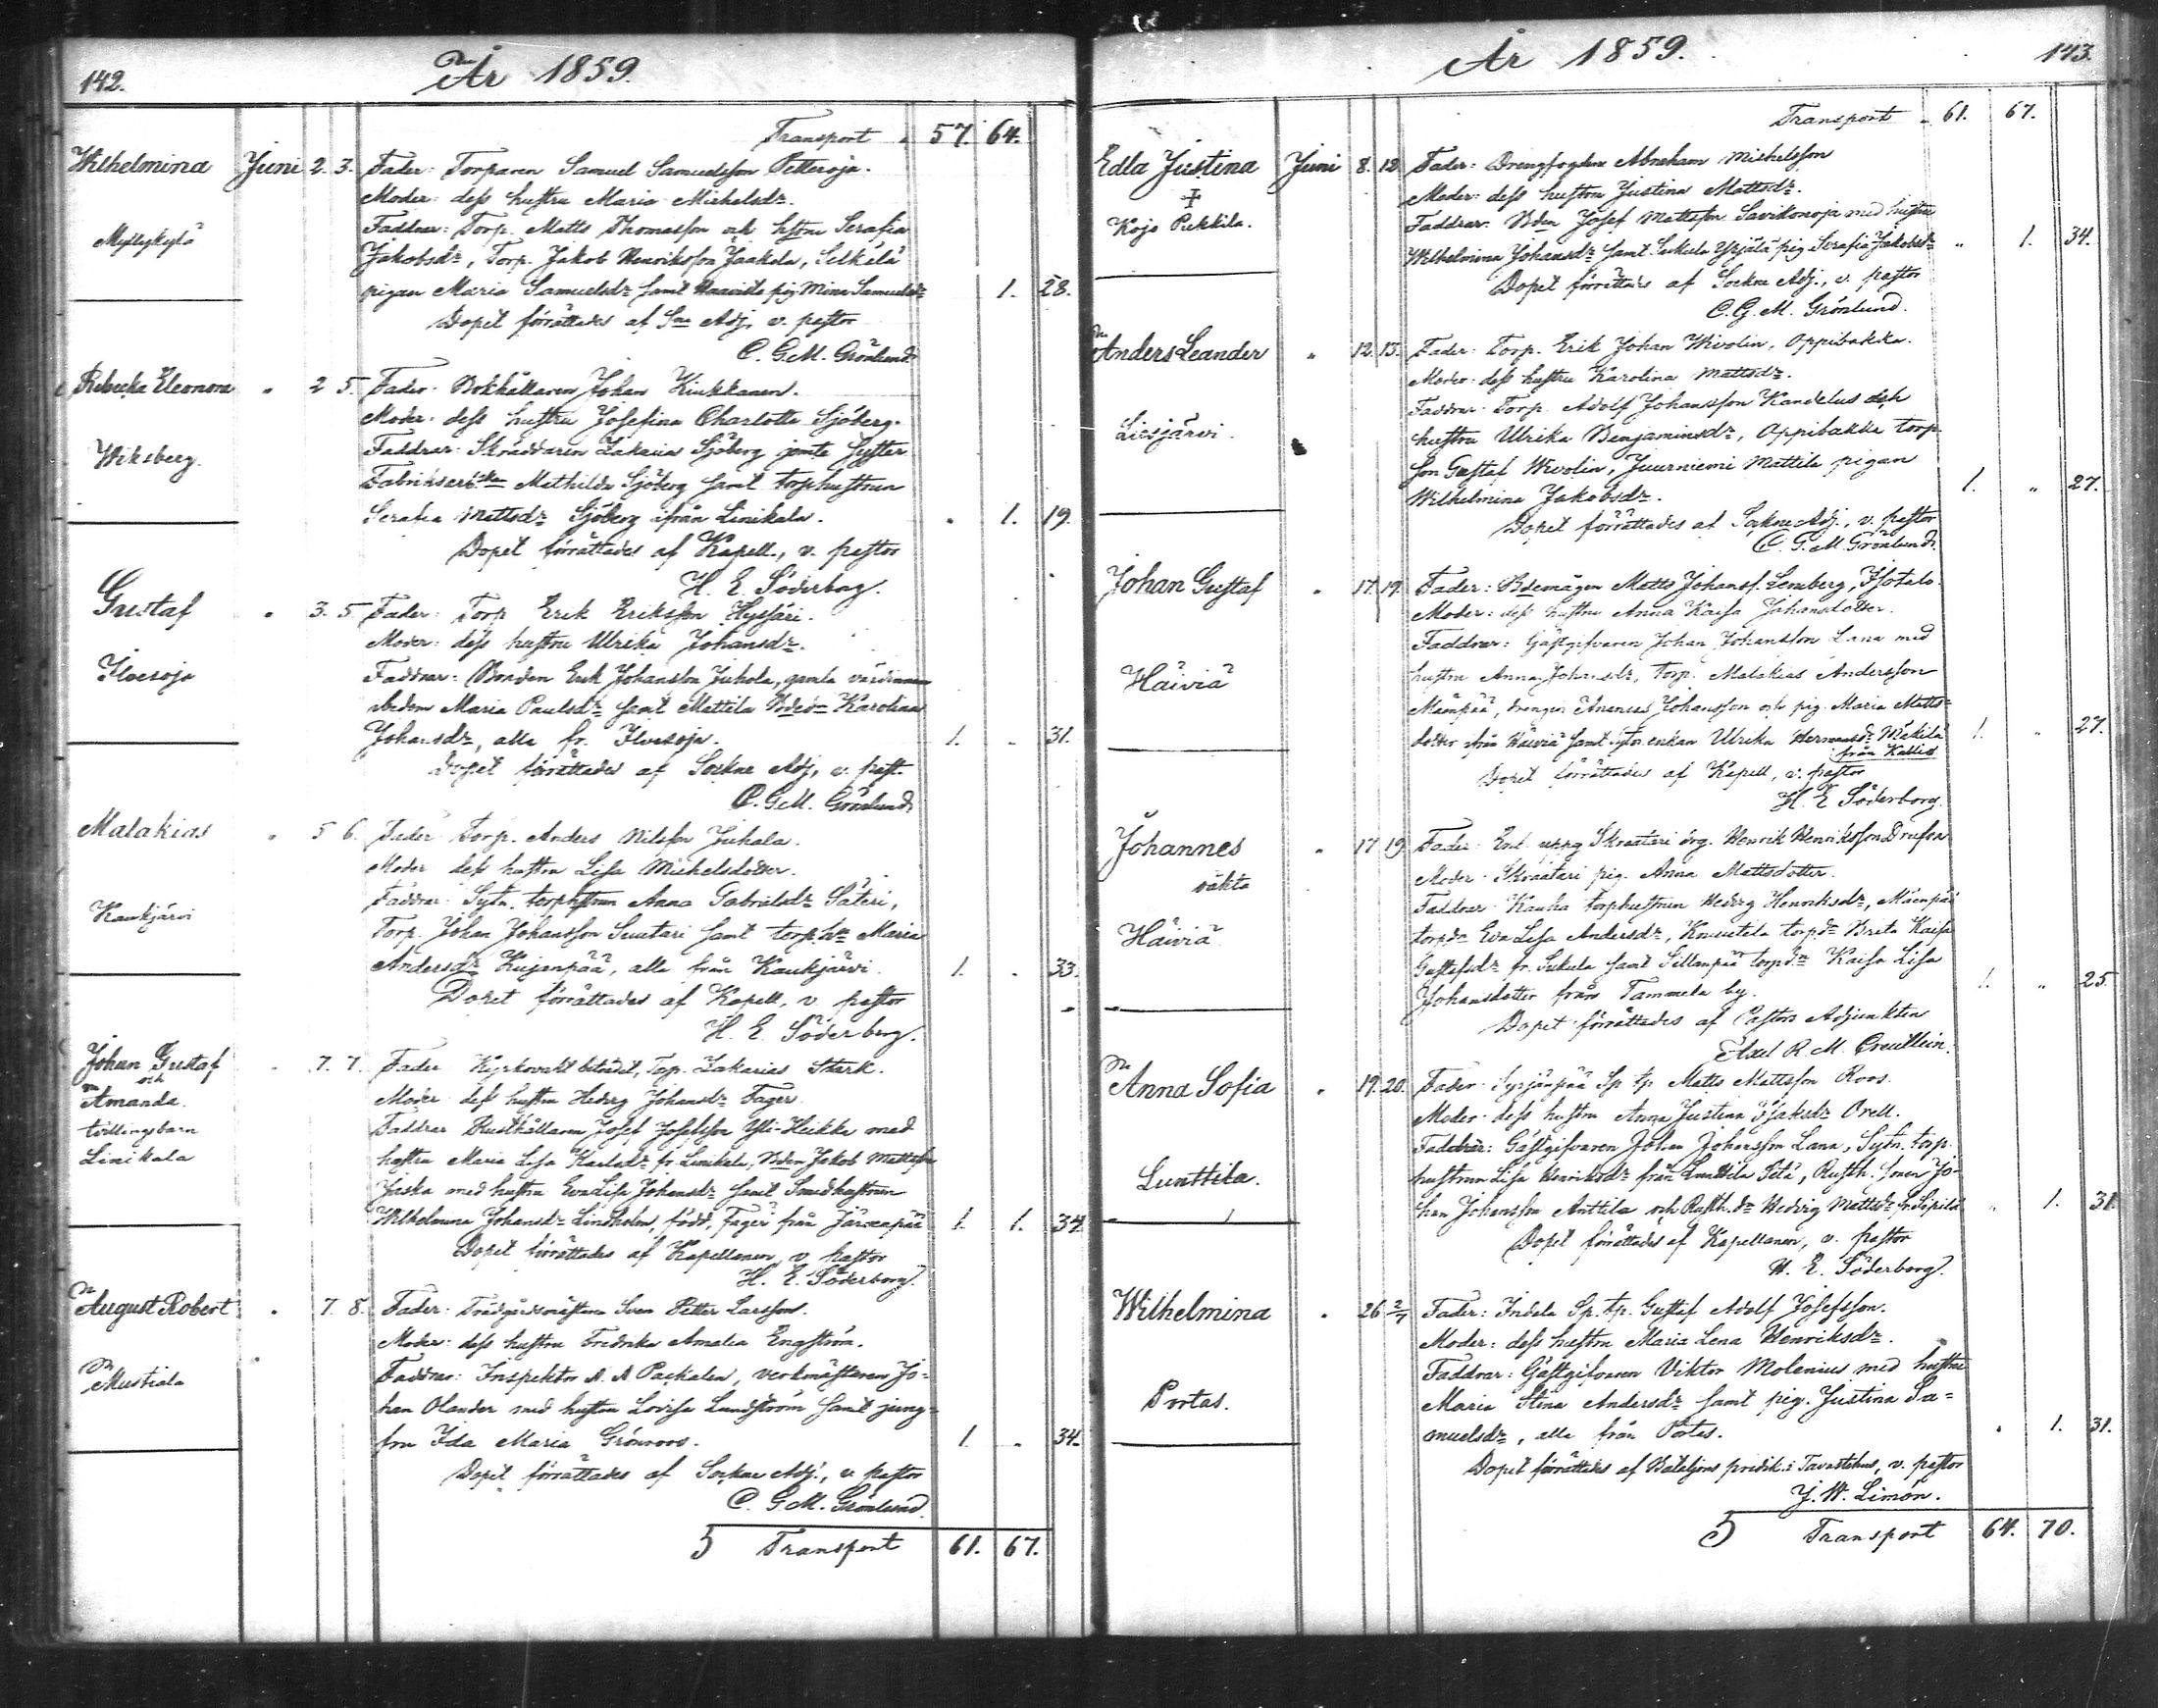 142.
År 1859.
Transport 57. 64.
Wilhelmina Juni 2. 3. Fader: Torparen Samuel Samuelsson Petteroja.
Moder: dess hustru Maria Michelsdr.
Faddrar: Torp. Matts Thomasson och hstru Serafia
Myllykylä
Jakobsdr, Torp. Jakob Henriksson Jaakola, Seikälä
pigan Maria Samuelsdr samt Haavisto pig. Mina Samuelsdr 1. 28.
Dopet förrättades af Sne Adj. v. pastor
C. G. M. Grönlund
Rebecka Eleonora " 2 5. Fader: Bokhållaren Johan Kiukkanen.
Moder: dess hustru Josefina Charlotta Sjöberg.
Wiksberg.
Faddrar: Skräddaren Zakarias Sjöberg jemte syster
Fabriksarb. Mathilda Sjöberg samt torphustrun
Serafia Mattsdr Sjöberg ifrån Linikala. " 1. 19.
Dopet förrättades af Kapell., v. pastor
H. E. Söderborg.
Gustaf " 3. 5. Fader: Torp Erik Eriksson
Moder: dess hustru Ulrika Johansdr.
Ilvesoja
Faddrar: Bonden Erik Johansson Juhola, gamla värdinnan
Maria Paulsdr samt Mattila Karolina
Johansdr, alla fr. Ilvesoja. 1. " 31.
Dopet förrättades af Sockne Adj, v. past.
C. G. M. Grönlund
Malakias " 5 6. Fader Torp. Anders Nilsson Juhala.
Moder dess hustru Lisa Michelsdotter.
Faddrar: Sytn. torphstrun Anna Gabrielsdr Säteri,
Kaukjärvi
Torp. Johan Johansson Suutari samt torp. hn Maria
Andersdr Kujanpää, alla från Kaukjärvi. 1. " 33.
Dopet förrättades af Kapell, v. pastor
H. E. Söderborg.
Johan Gustaf " 7. 7. Fader Kyrkovakt Zakarias Stark.
och
Amanda.
Moder dess hustru Hedvig Johansdr Fager.
tvillingsbarn
Faddrar Rusthållaren Josef Josefsson Yli-Heikki med
Linikala
hustru Maria Lisa Karlsdr fr. Linikala, Bden Jakob Mattsson
Jaska med hustru Eva Lisa Johansdr samt Smedhustrun
Wilhelmina Johansdr Lindholm, född, Fager från Järvenpää 1. 1. 34.
Dopet förrättades af Kapellanen, v. pastor
H. E. Söderborg.
August Robert " 7. 8. Fader: Trädgårdsmästaren Sven Petter Larsson.
Moder: dess hustru Fredrika Amalia Engström.
Mustiala
Faddrar: Inspektor A. A Packalen, verkmästaren Jo-
han Olander med hustru Lovisa Lundström samt jung-
fru Ida Maria Grönroos. 1. " 34.
Dopet förrättades af Sockne Adj., v. pastor
C. G. M. Grönlund.
5 Transport 61. 67.
År 1859.
143.
Transport 61. 67.
Edla Justina Juni 8. 12. Fader: Drengfogden Abraham Michelsson
Moder: dess hustru Justina Mattsdr.
Kojo Pekkila.
Faddrar: Bden Josef Mattsson Savikonoja med hustru
Wilhelmina Johansdr samt Sukula Yrjälä pig Serafia Jakobsdr " 1. 34.
Dopet förrättades af Sockne Adj., v. pastor
C. G. M. Grönlund.
Anders Leander " 12. 13. Fader: Torp. Erik Johan Wivolin, Oppibakka.
Moder: dess hustru Karolina Mattsdr.
Faddrar: Torp. Adolf Johansson Kandelus och
Liesjärvi.
hustru Ulrika Benjaminsdr, Oppibakka torp.
son Gustaf Wivolin, Juurniemi Mattila pigan
Wilhelmina Jakobsdr. 1. " 27.
Dopet förrättades af Sockne Adj., v. pastor
C. G. M. Grönlund.
Johan Gustaf " 17. 19. Fader: Bdemågen Matts Johanss. Lemberg, Isotalo.
Moder: dess hustru Anna Kaisa Johansdotter.
Faddrar: Gästgifvaren Johan Johansson Lana med
Häiviä
hustru Anna Johansdr, torp. Malakias Andersson
Mäenpää, drengen Ananias Johansson och pig. Maria Matts-
dotter från Häiviä samt enkan Ulrika Hermansdr Mäkilä 1. " 27.
från Kallio
Dopet förrättades af Kapell, v. pastor
H. E. Söderborg.
Johannes " 17 19. Fader: Enl. uppg Skräätari drg. Henrik Henriksson
oäkta
Moder: Skräätari pig. Anna Mattsdotter.
Faddrar: Kauha torphustrun Hedvig Henriksdr, Mäenpää
Häiviä
torpdr Eva Lisa Andersdr, torpdr Brita Kaisa
Gustafsdr fr. Sukula samt Sillanpää torpdr Kaisa Lisa
Johansdotter från Tammela by. 1. " 25.
Dopet förrättades af Pastors Adjunkten
Axel R. M. Creutlein.
Anna Sofia " 19. 20. Fader: Syrjänpää Sp. tp Matts Mattsson Roos.
Moder: dess hustru Anna Justina Isaksdr Orell.
Faddrar: Gästgifvaren Johan Johansson Lana, Sytn. torp.
Lunttila.
hustrun Lisa Henriksdr från Lunttila Pelä, Rusth. sonen Jo-
han Johansson Anttila och Rusth. dr Hedvig Mattsdr fr. Sipilä " 1. 31
Dopet förrättades af Kapellanen, v. pastor
H. E. Söderborg.
Wilhelmina " 26 2/7 Fader: Indela Sp. tp. Gustaf Adolf Josefsson.
Moder: dess hustru Maria Lena Henriksdr.
Faddrar: Gästgifvaren Viktor Molenius med hustru
Portas.
Maria Stina Andersdr samt pig. Justina Sa-
muelsdr, alla från Portas. " 1. 31.
Dopet förrättades af Bataljons predik. i Tavastehus, v. pastor
J. W. Limón.
5 Transport 64. 70.